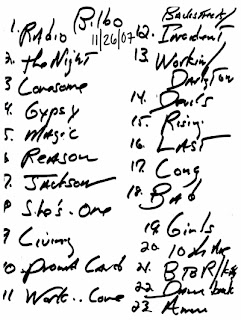 Bilbo
11/26/07
1. RADIO
2. the Night
3 Lonesome
4. Gypsy
5. MAGIC
6 REASON
7. JACKSON
8 She's.. One
9 Living
10. Land
11 Work.. Come
Backstreets/
12. Incident
13. Workin/
Darlington
14. Devils
15. Rising
16. LAST
17. Long
18. BAD
19. Girls
20. 10th Ave
21. BTBR/
22.
23. Amer